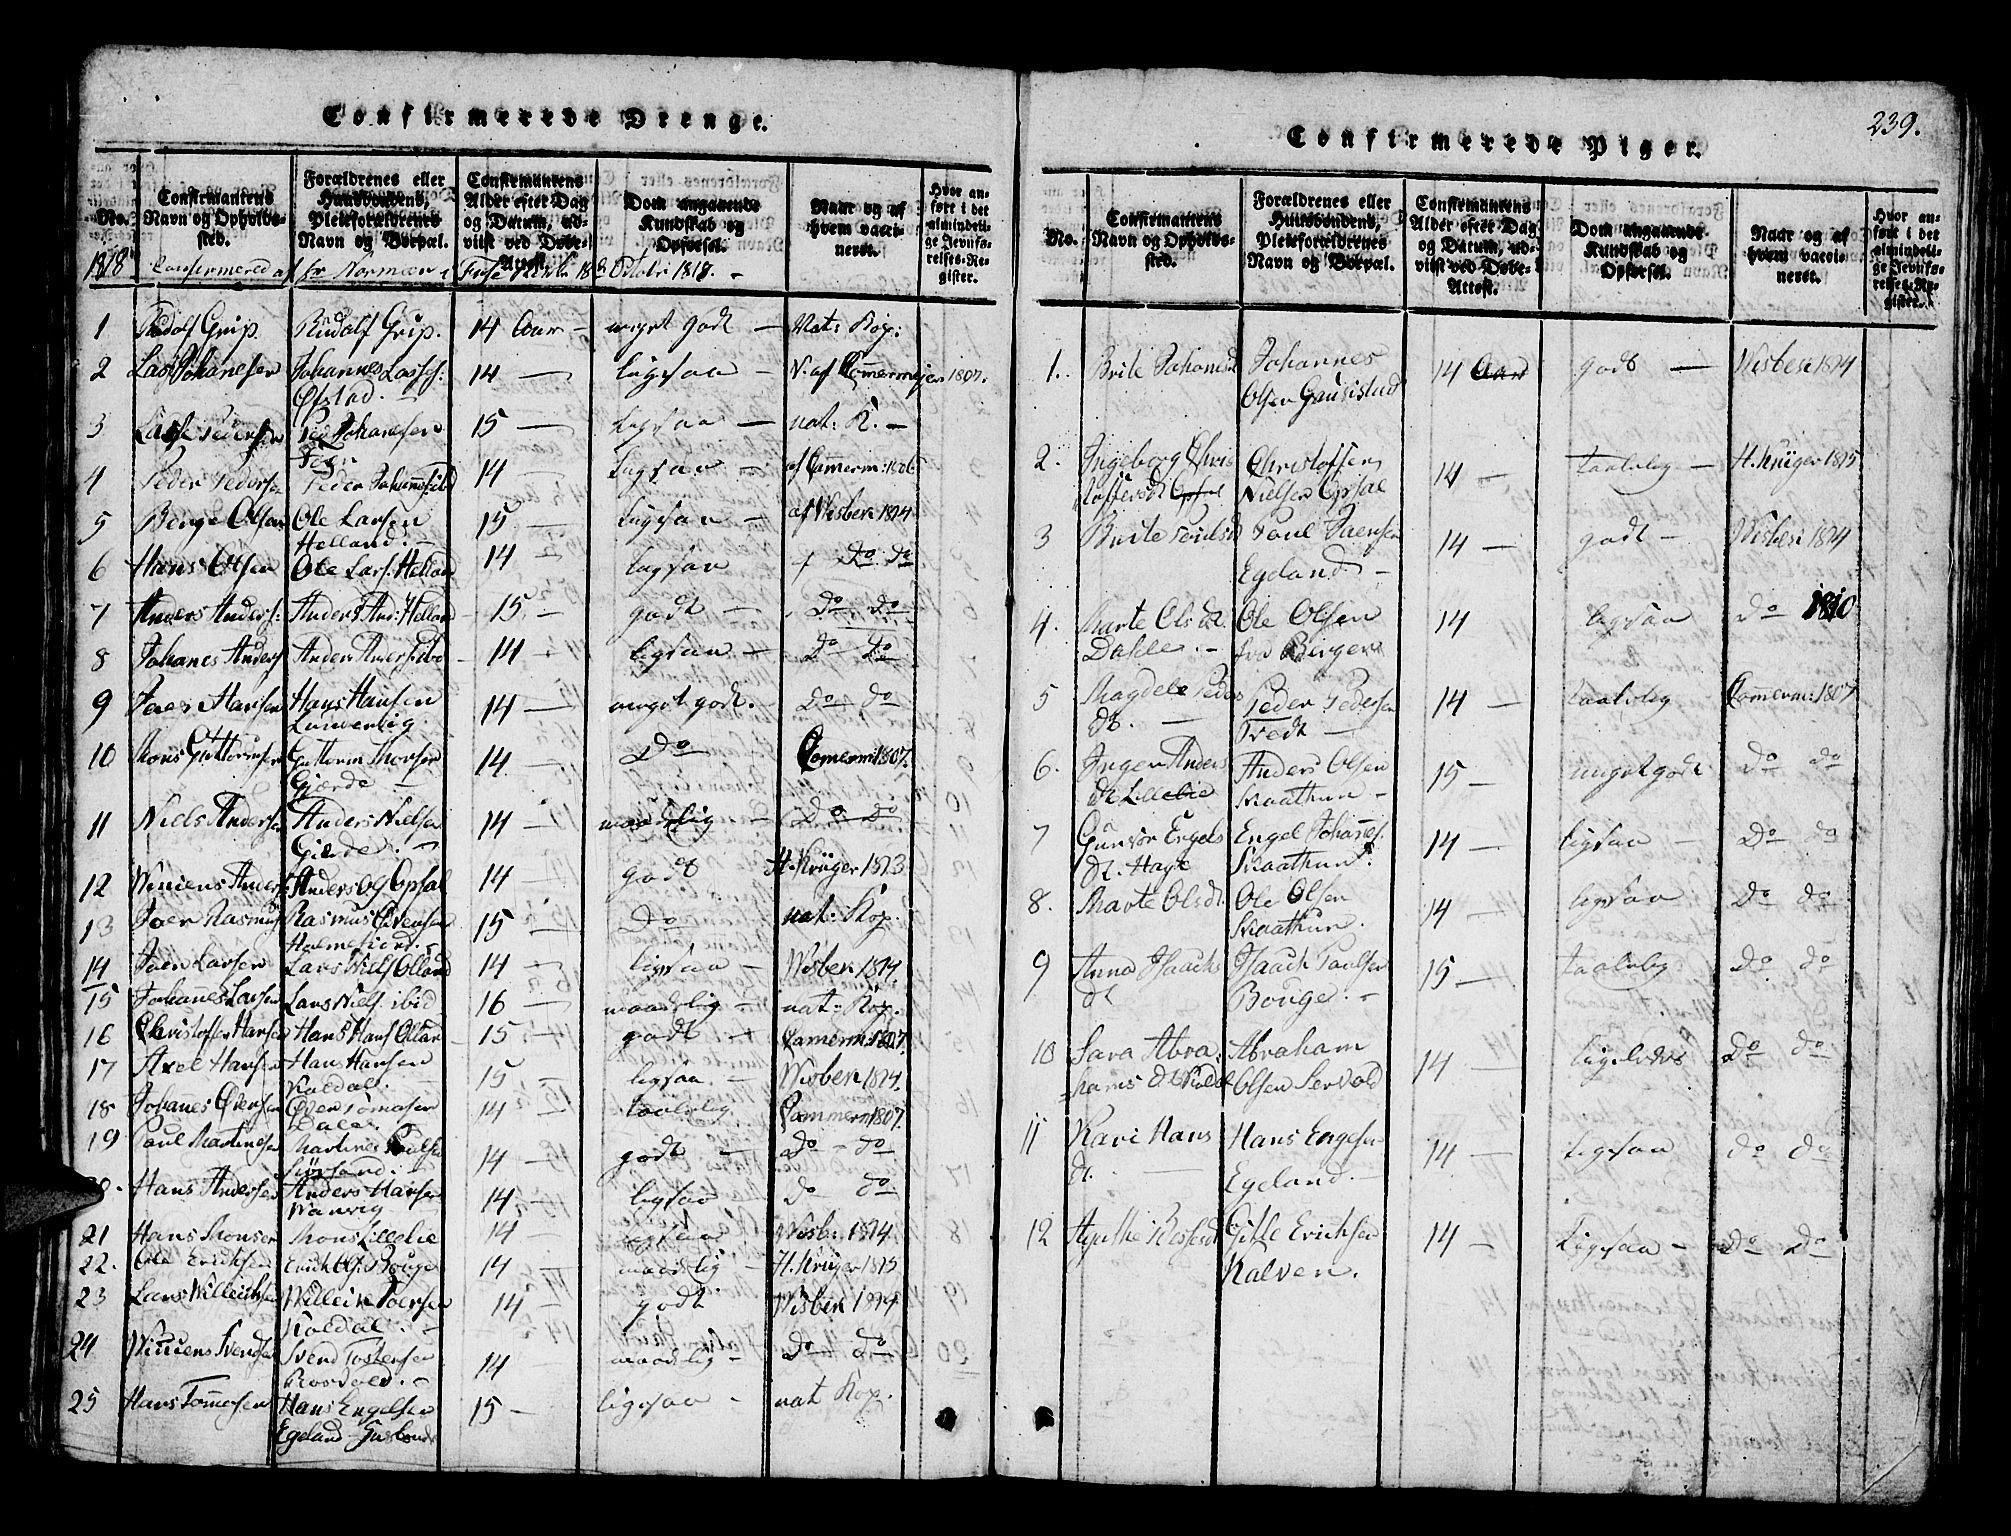 Confirmerede Drenge.
No.
Confirmantens Navn og Opholds-sted.
Forældrenes eller Huusbondens, Pleieforældrenes Navn og Borpæl.
Confirmantens Alder efter Dag og Datum, ud-viist ved Døbe-Attest.
Dom angaaende Kundskab og Opførsel.
Naar og af hvem vacci-neret.
Hvor an-ført i det almindeli-ge Jevnfø-relses-Re-gister.
1818 Confirmered af Hr Norman i Fuse Kirke 18 Octobr 1818. -
1 Rudolf Grip Rudolf Grip. 14 Aar - meget godt - Nat: Kop:
2 Las Johanesen Johannes Lasses: Øfstad. - 14 - ligesaa - N: af Camermejer 1807.
3 Lasse Pedersen Ped Johansen 15 - ligesaa - nat: K. -
4 Peder Pedersen Peder Johannes ibid 14 - ligesaa - af Camerm: 1806
5 Børge Olsen Ole Larsen Helland. - 15 - ligesaa - af Wisbek 1814
6 Hans Olsen Ole Lars: Helland 14 - ligesaa - Do Do
7 Anders Anders: Anders And: Helland 15 - godt - Do Do
8 Johanes Anders Anders Anders ibid 14 - ligesaa - Do Do
9 Joen Hansen Hans Hansen 14 - meget godt. - Do Do
10 Mons Guttormsen Guttorm Monsen Gjerde - 14 - Do Camerm: 1807.
11 Niels Andersen Anders Nielsen Gierde. - 14 - maadelig - Do Do
12 Winiens Anders Anders Ols Opsal 14 - godt H. Krüger 1813
13 Joen Rasmus Rasmus Iversen Holmefiord. - 15 - Do nat: Kop.
14 Joen Larsen Lars Niels Olland 14 - ligesaa - Wisbek 1814
15 Johannes Larsen Lars Niels: ibid 16 - maadelig - nat: Kop.
16 Christofer Hansen Hans Hans Olland 15 - godt - Camerm: 1807.
17 Axel Hansen Hans Hansen Koldal. 15 - ligesaa - Wisbek 1814.
18 Johanes Øversen Øver Tomasen Dale. 14 taalelig Cammerm 1807.
19 Paul Martinesen Martines Poulsen 14 - godt - Do - do
20. Hans Andersen Anders Hansen Wanvig - 14 - ligesaa Do do
21 Hans Monsen Mons Lillebie 14 - ligesaa Wisbe: 1814.
22. Ole Ericksen Erich Ols: Bouge 14 - maadelig - H. Krüger 1815
23 Lars Willeichsen Willeik Joersen Koldal. - 14 - godt Wisbek 1814
24 Winiens Svendsen Svend Tostensen 14 maadelig - Do do
25 Hans Tommesen Hans Engelsen Egeland 15 - ligesaa - nat Kop.
239.
Confirmerede Piger.
No.
Confirmantens Navn og Opholds-sted.
Forældrenes eller Huusbondens, Pleieforældrenes Navn og Borpæl.
Confirmantens Alder efter Dag og Datum, ud-viist ved Døbe-Attest.
Dom angaaende Kundskab og Opførsel.
Naar og af hvem vacci-neret.
Hvor an-ført i det almindeli-ge Jevnfø-relses-Re-gister.
1. Brite Johanesd Johannes Olsen 14 Aar godt - Wisbek 1814
2. Ingeborg Christoffersdt Opsal Christoffer Nielsen Opsal 14 - taalelig - H. Krüger 1815
3 Brite Poulsd Poul Joensen Egeland - 14 - godt - Wisbek 1814
4. Marte Olsdt Dahle. - Ole Olsen fra Bergen 14 ligesaa Do 1810
5 Magdele Peders dt. - Peder Pedersen Tvedt - 14 - taalelig Camerm: 1807
6. Inger Anders dt Lillebie Anders Olsen Skaathun - 15 - meget godt Do do
7 Gunvor Engels dt. Engel Johannes: Skaathun. 14 - ligesaa Do do
8. Marte Olsdt. Ole Olsen Skaathun. 14 - ligesaa Do do
9 Anna Isachs dt Isach Paulsen Bouge. - 15 - taalelig Do do
10 Sara Abrahams dt Abraham Olsen 14 - ligeledes Do do
11 Kari Hans dt. - Hans Engelsen Egeland. - 14 - ligesaa do do
12 Gitle Ericksen Kalven. 14 - ligesaa - Do Do